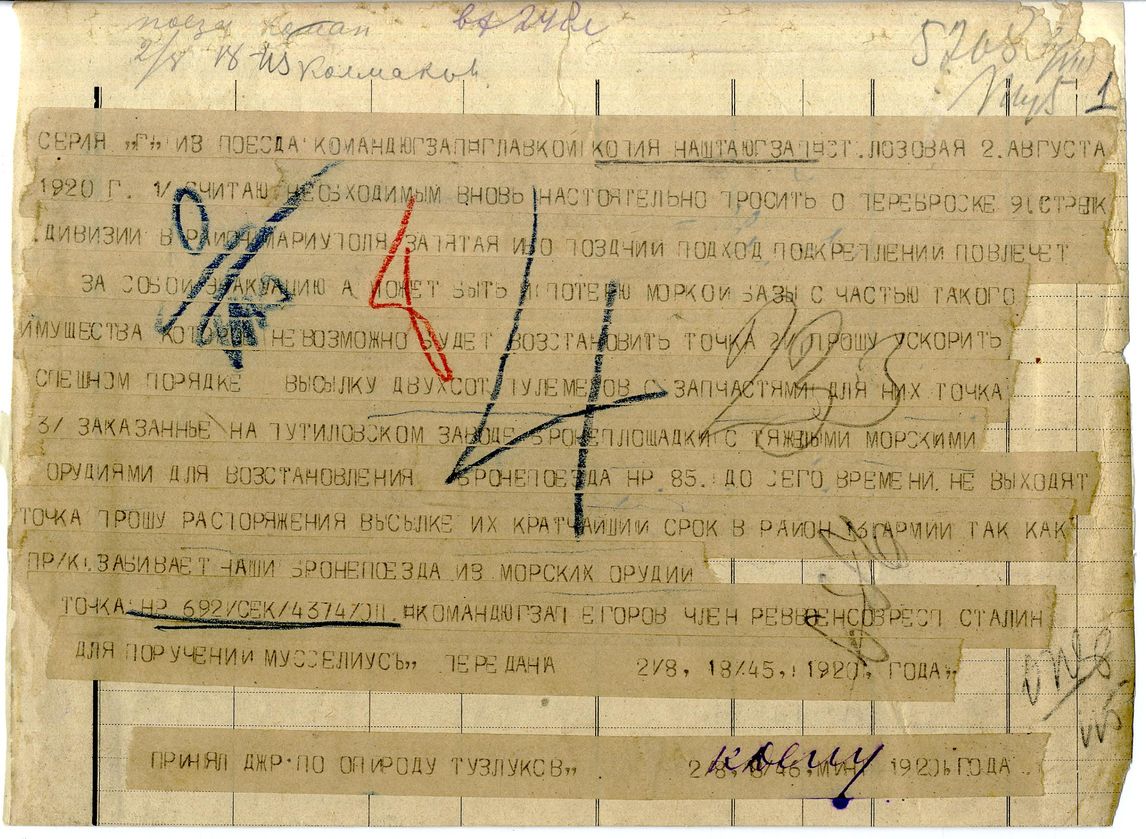 поезд
вх 248
2/8 18-45 Колмаков
5768
1
СЕРИЯ „Г" ИЗ ПОЕЗДА КОМАНДЮГЗАП ГЛАВКОМ КОПИЯ НАШТАЮГЗАП СТ. ЛОЗОВАЯ 2. АВГУСТА
1920 Г. 1/ СЧИТАЮ НЕОБХОДИМЫМ ВНОВЬ НАСТОЯТЕЛЬНО ПРОСИТЬ О ПЕРЕБРОСКЕ 9
ДИВИЗИИ В РАЙОН МАРИУПОЛЯ ЗАПЯТАЯ ИБО ПОЗДНИЙ ПОДХОД ПОДКРЕПЛЕНИЙ ПОВЛЕЧЕТ
ЗА СОБОЙ ЭВАКУАЦИЮ А МОЖЕТ БЫТЬ И ПОТЕРЮ МОРКОЙ БАЗЫ С ЧАСТЬЮ ТАКОГО
ИМУЩЕСТВА НЕВОЗМОЖНО БУДЕТ ВОССТАНОВИТЬ ТОЧКА 2/ ПРОШУ УСКОРИТЬ
СПЕШНОМ ПОРЯДКЕ ВЫСЫЛКУ ДВУХСОТ ПУЛЕМЕТОВ С ЗАПЧАСТЯМИ ДЛЯ НИХ ТОЧКА
3/ ЗАКАЗАННЫЕ НА ПУТИЛОВСКОМ ЗАВОДЕ БРОНЕПЛОЩАДКИ С ТЯЖЕЛЫМИ МОРСКИМИ
ОРУДИЯМИ ДЛЯ ВОЗСТАНОВЛЕНИЯ БРОНЕПОЕЗДА НР. 85. ДО СЕГО ВРЕМЕНИ НЕ ВЫХОДЯТ
ТОЧКА ПРОШУ РАСПОРЯЖЕНИЯ ВЫСЫЛКЕ ИХ КРАТЧАЙШИЙ СРОК В РАЙОН 13 АРМИИ ТАК КАК
ПР/К ЗАБИВАЕТ НАШИ БРОНЕПОЕЗДА ИЗ МОРСКИХ ОРУДИЙ
ТОЧКА НР 692/СЕК/4374/ОП. КОМАНДЮГЗАП ЕГОРОВ ЧЛЕН РЕВВОЕНСОВРЕСП СТАЛИН
ДЛЯ ПОРУЧЕНИЙ МУССЕЛИУСЪ„ ПЕРЕДАНА 2/8, 18/45, 1920, ГОДА„
223
ПРИНЯЛ ДЖР ПО ОПИРОДУ ТУЗЛУКОВ„ 2/8, МИН 1920, ГОДА